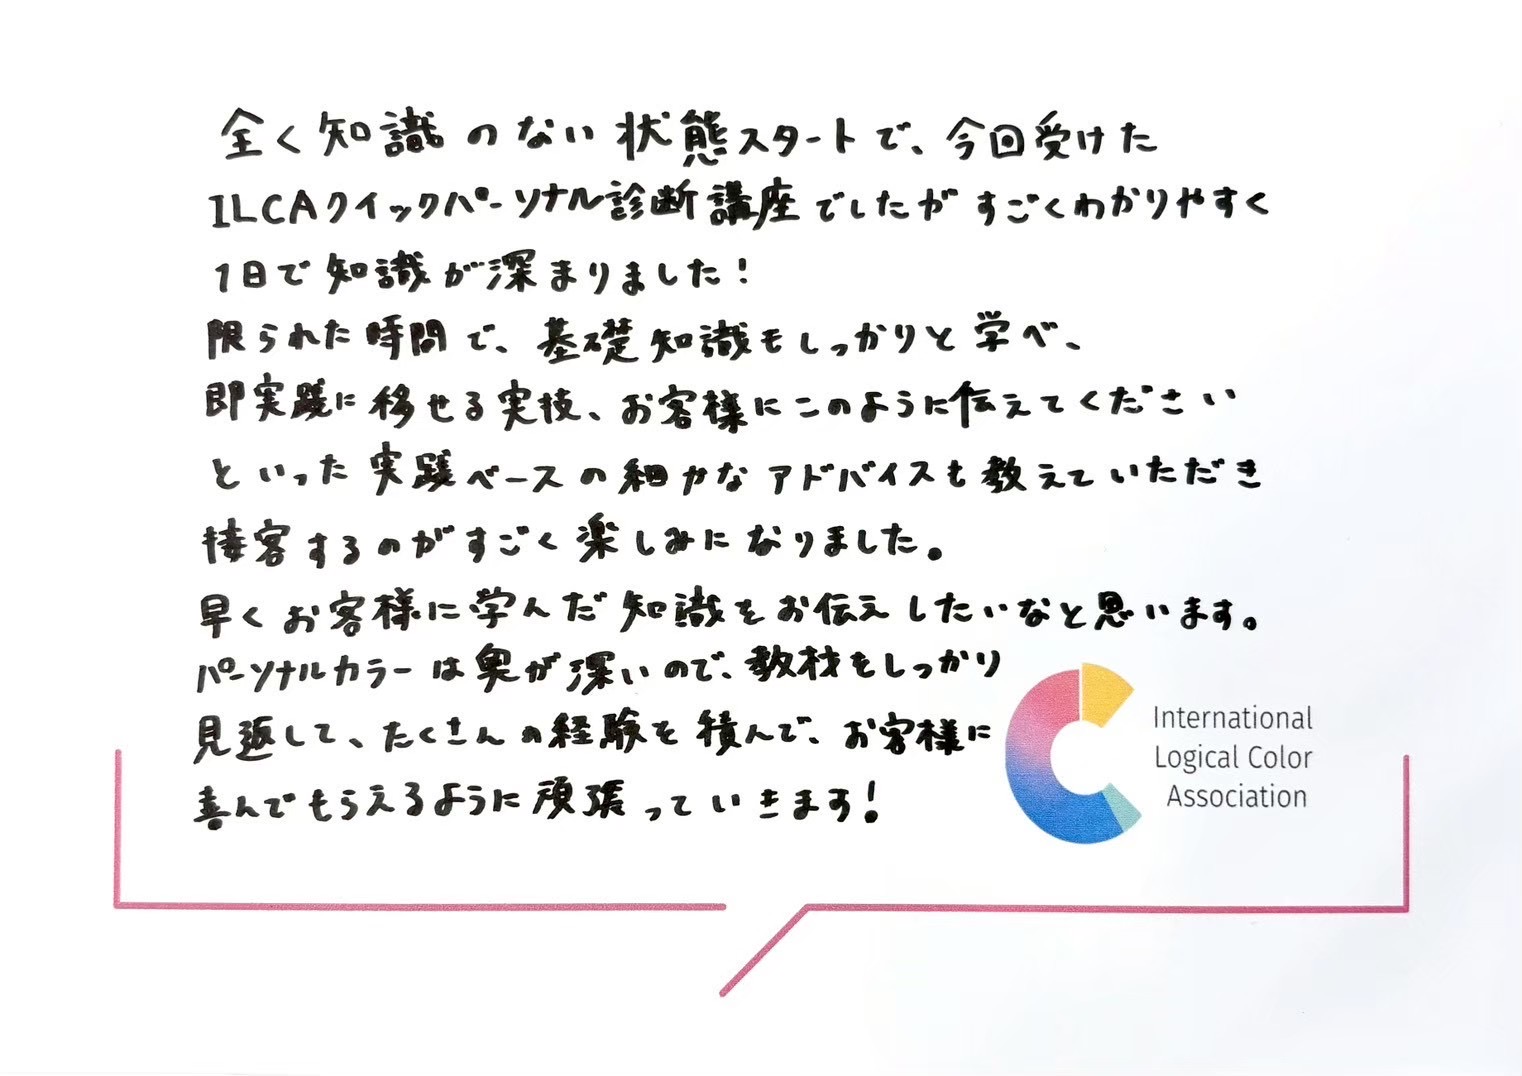 全く知識のない状態スタートで、今回受けた
ILCAクイックパーソナル診断講座でしたがすごくわかりやすく
1日で知識が深まりました!
限られた時間で、基礎知識もしっかりと学べ、
即実践に移せる実技、お客様にこのように伝えてください
といった実践ベースの細かなアドバイスも教えていただき
接客するのがすごく楽しみになりました。
早くお客様に学んだ知識をお伝えしたいなと思います。
パーソナルカラーは奥が深いので、教材をしっかり
見返して、たくさんの経験を積んで、お客様に
喜んでもらえるように頑張っていきます!
International
Logical Color
Association